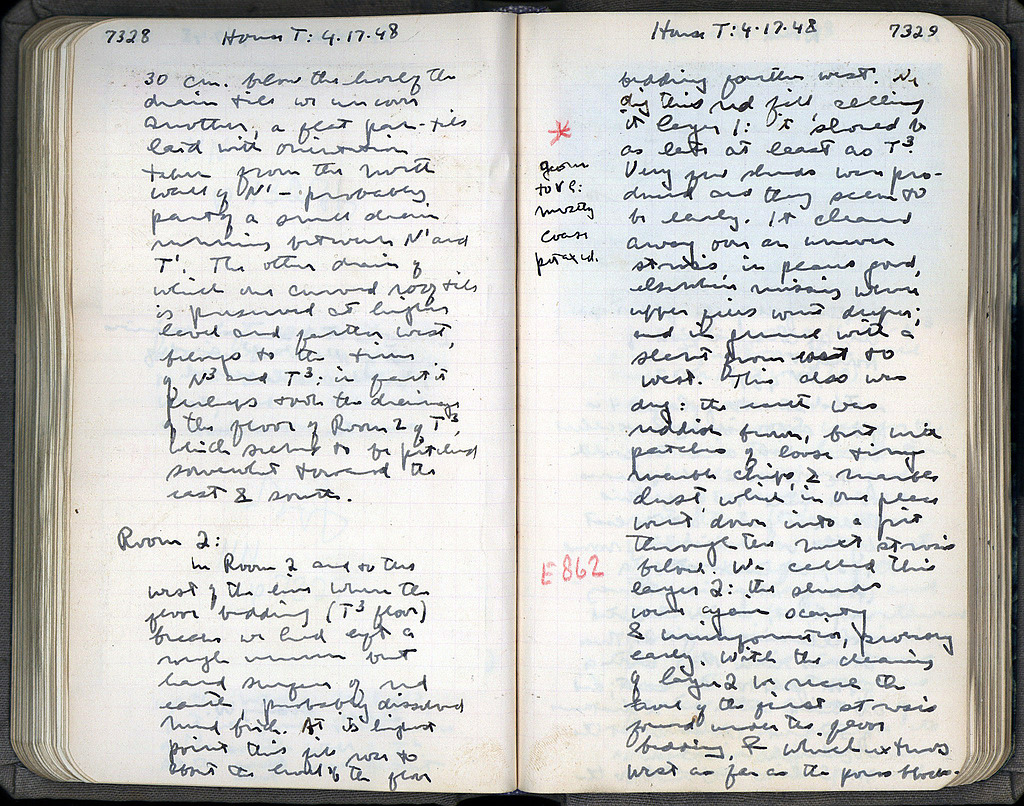 7328 House T: 4.17.48
30 cm. below the level of the
drain tile we uncover
another, a flat pan-tile
laid with orientation
taken from the north
wall of N¹ – probably
part of a small drain
running between N¹ and
T¹. The other drain of
which one curved roof tile
is preserved at higher
level and further west,
belongs to the time
of N³ and T³: in fact it
perhaps took the drainage
of the floor of Room 2 of T³,
which seems to be pitched
somewhat toward the
east & south.
Room 2:
In Room 2 and to the
west of the line where the
floor bedding (T³ floor)
breaks we had left a
rough uneven but
hard surface of red
earth, probably dissolved
mud brick. At its highest
point this fill rose to
about the level of the floor
House T: 4.17.48 7329
bedding further west. We
dig this red fill calling
it layer 1: it should be
as late at least as T³.
Very few sherds were pro-
duced and they seem to
be early. It cleared
away over an uneven
strosis, in places good,
elsewhere missing where
upper fills went deeper;
and in general with a
slant from east to
west. This also was
dug: the earth was
reddish brown, but with
patches of loose
marble chips, & marble
dust, which in one place
went down into a pit
through the next strosis
below. We called this
layer 2: the sherds
were again scanty
& uninformative,
early. With the clearing
of layer 2 we reach the
level of the first strosis
found under the floor
bedding, & which extends
west as far as the poros blocks.
*
gone
to
mostly
coarse
E 862